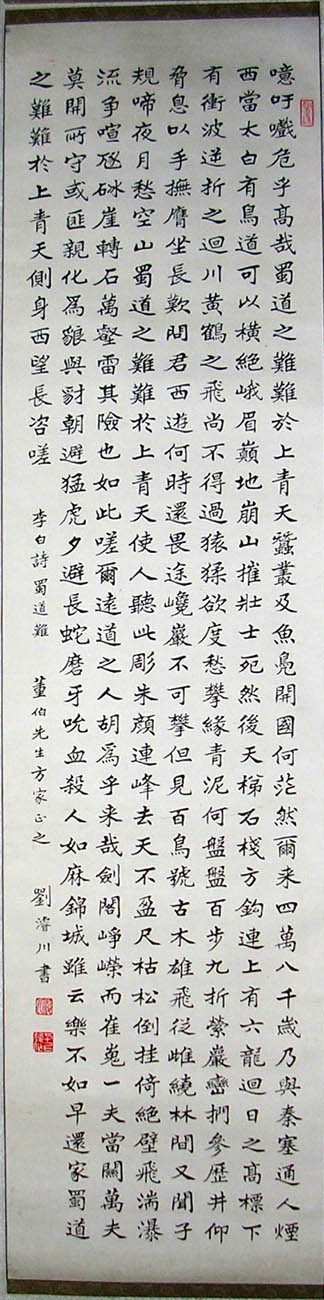 噫吁嚱危乎高哉蜀道之難難於上青天蠶叢及魚鳧開國何茫然爾来四萬八千歲乃與秦塞通人煙
西當太白有鳥道可以橫絕峨眉巔地崩山摧壯士死然後天梯石棧方鈎連上有六龍迴日之高標下
有衝波逆折之迴川黃鶴之飛尚不得過猿猱欲度愁攀緣青泥何盤盤百步九折縈巖巒捫參歷井仰
脅息以手撫膺坐長歎問君西遊何時還畏途巉巖不可攀但見百鳥號古木雄飛從雌繞林間又聞子
規啼夜月愁空山蜀道之難難於上青天使人聽此彫朱顏連峰去天不盈尺枯松倒挂倚絕壁飛湍瀑
流爭喧豗砯崖轉石萬壑雷其險也如此嗟爾遠道之人胡爲乎来哉劍閣崢嶸而崔嵬一夫當關萬夫
莫開所守或匪親化爲狼與豺朝避猛虎夕避長蛇磨牙吮血殺人如麻錦城雖云樂不如早還家蜀道
之難難於上青天側身西望長咨嗟 李白詩蜀道難 董伯先生方家正之 劉濬川書